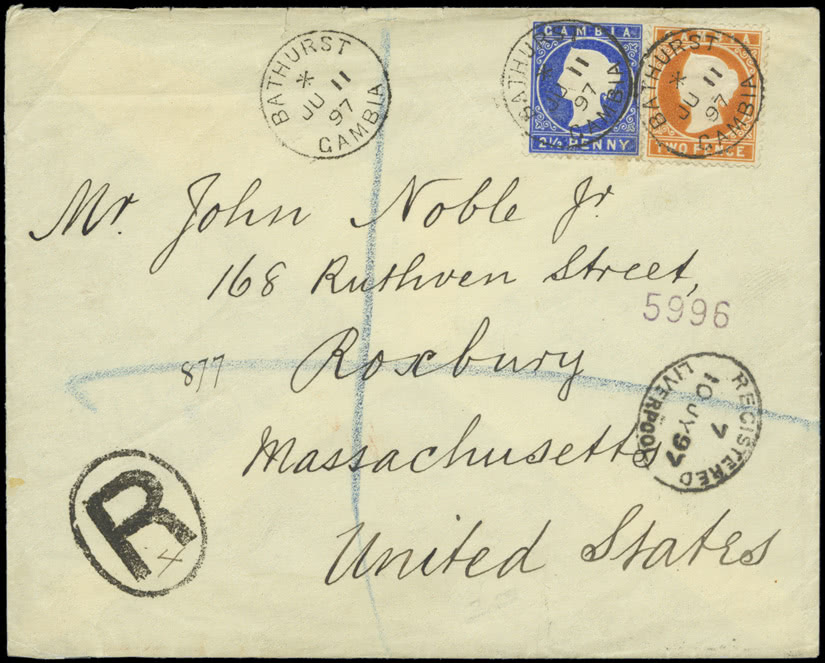 BATHURST
*
JU 11
97
GAMBIA
GAMBIA
2½ PENNY
BATHURST
*
JU 11
97
GAMBIA
GAMBIA
TWO PENCE
BATHURST
*
JU 11
97
GAMBIA
Mr. John Noble Jr.
168 Ruthven Street,
5996
877 Roxbury
REGISTERED
7
10 JY 97
LIVERPOOL
Massachusetts
R
4
United States